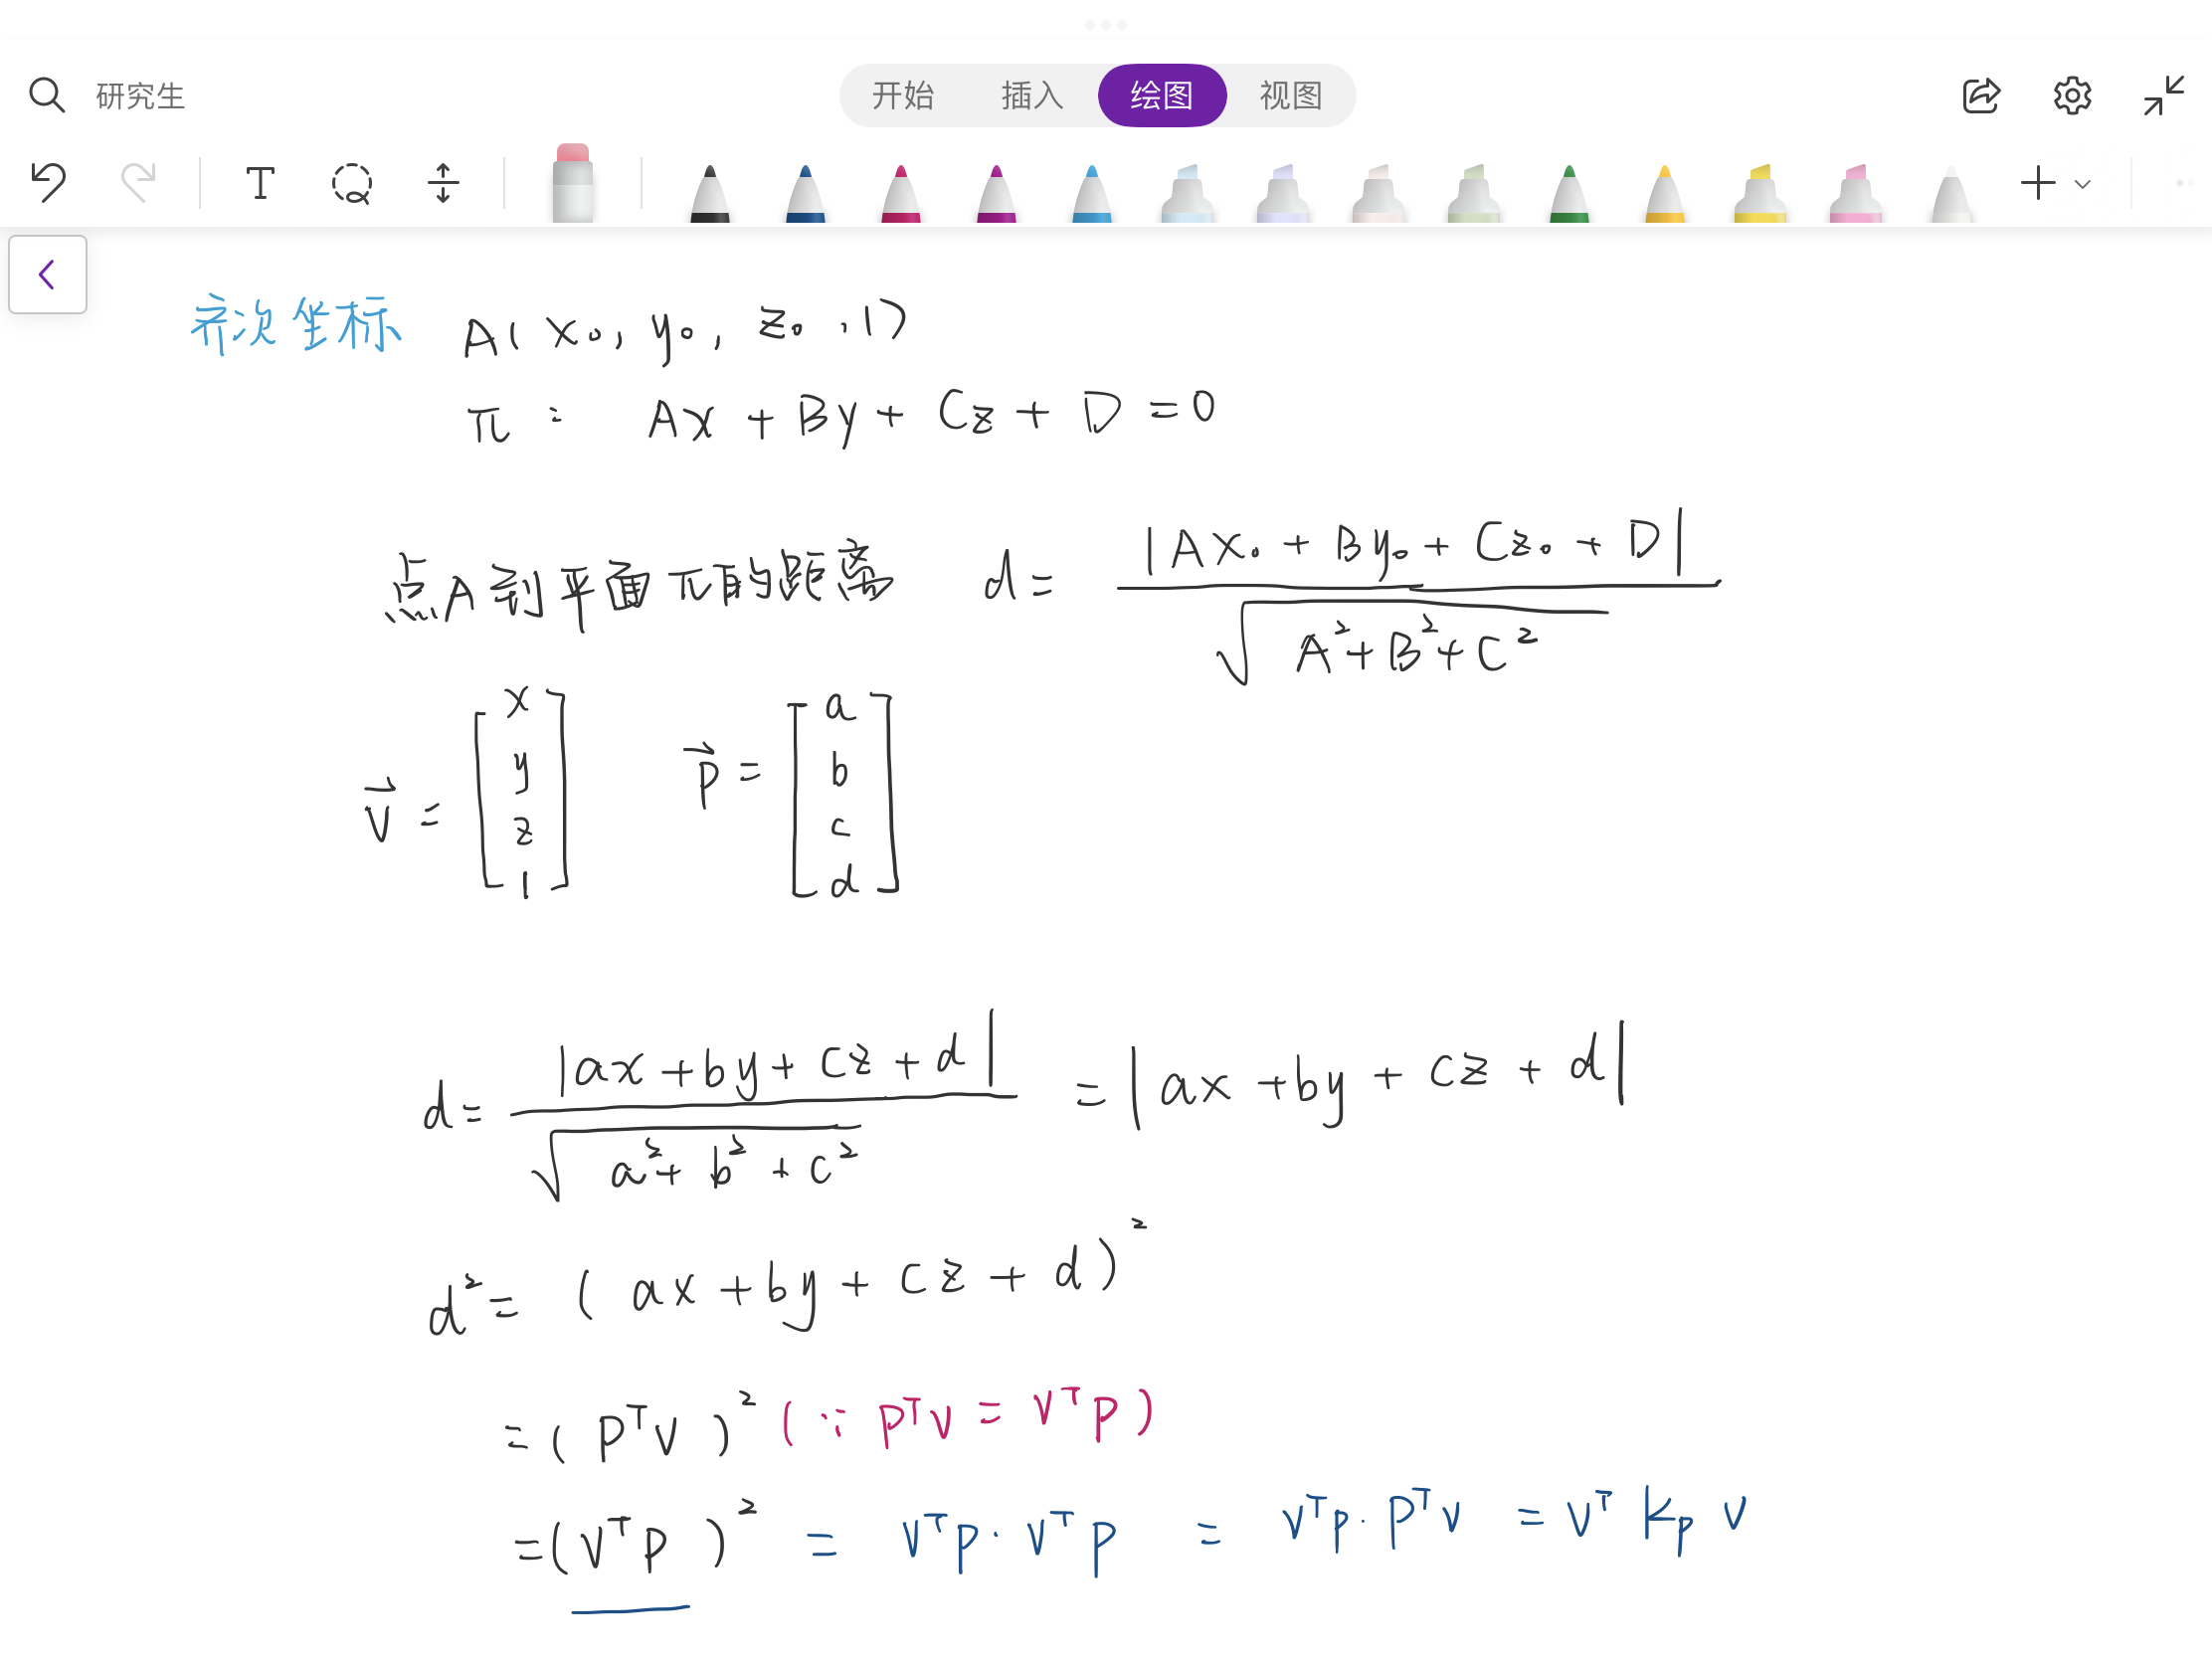 研究生
开始 插入 绘图 视图
T
齐次坐标 A(x₀, y₀, z₀, 1)
π: Ax + By + Cz + D = 0
点A到平面π的距离 d = |Ax₀ + By₀ + Cz₀ + D| / √(A² + B² + C²)
v⃗ = [x y z 1] p⃗ = [a b c d]
d = |ax + by + cz + d| / √(a² + b² + c²) = |ax + by + cz + d|
d² = (ax + by + cz + d)²
= (pᵀv)² (∵ pᵀv = vᵀp)
= (vᵀp)² = vᵀp · vᵀp = vᵀp · pᵀv = vᵀ kₚ v